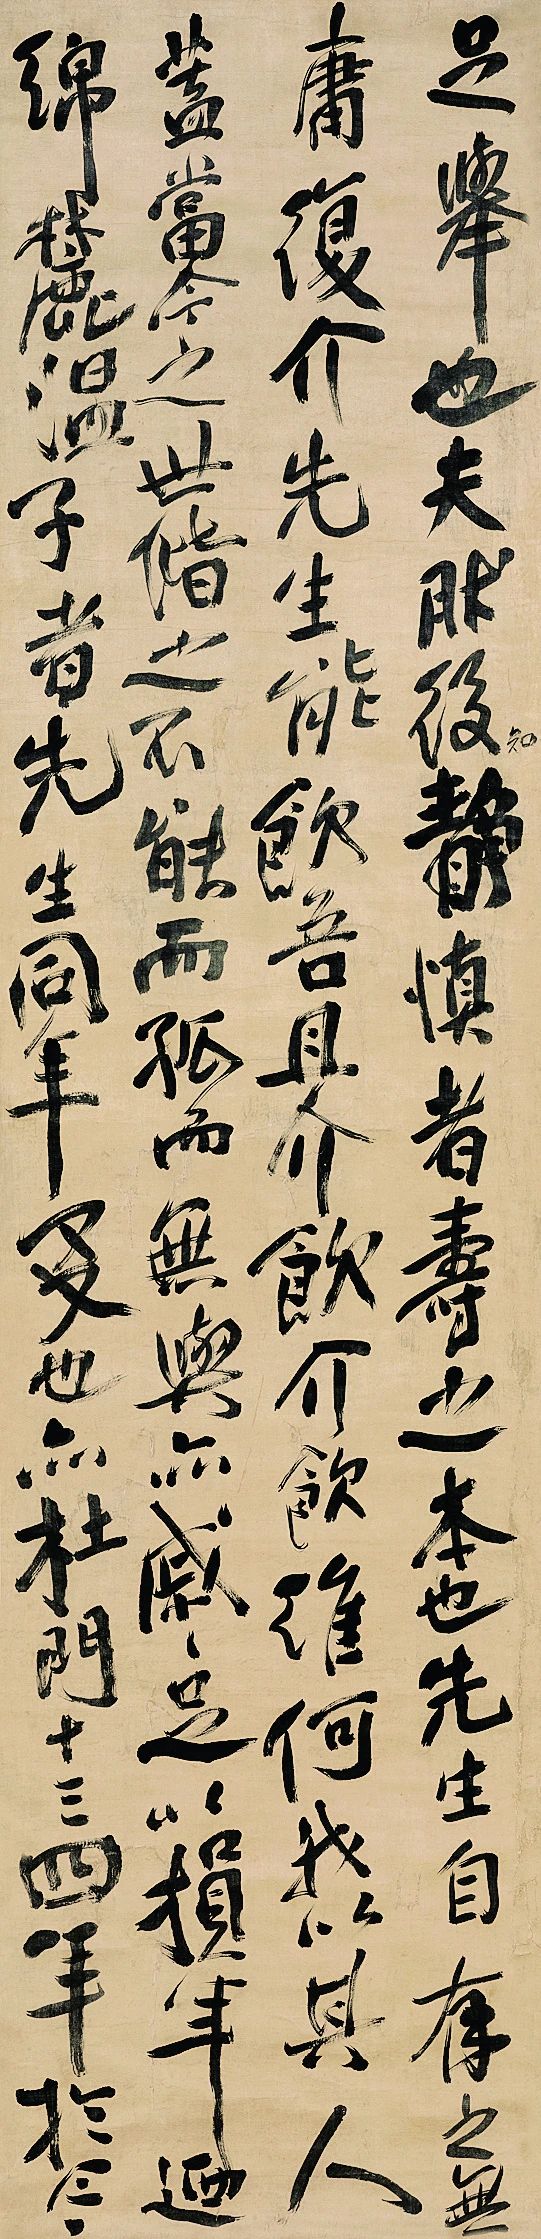 足舉也夫肰後知靜慎者壽之本也先生自存之無
庸復介先生能飲吾且介飲介飲維何我以其人
蓋當今之世偕之不能而孤而無與亦戚〻足以損年迺
綿麓溫子者先生同年友也亦杜門十三四年於今